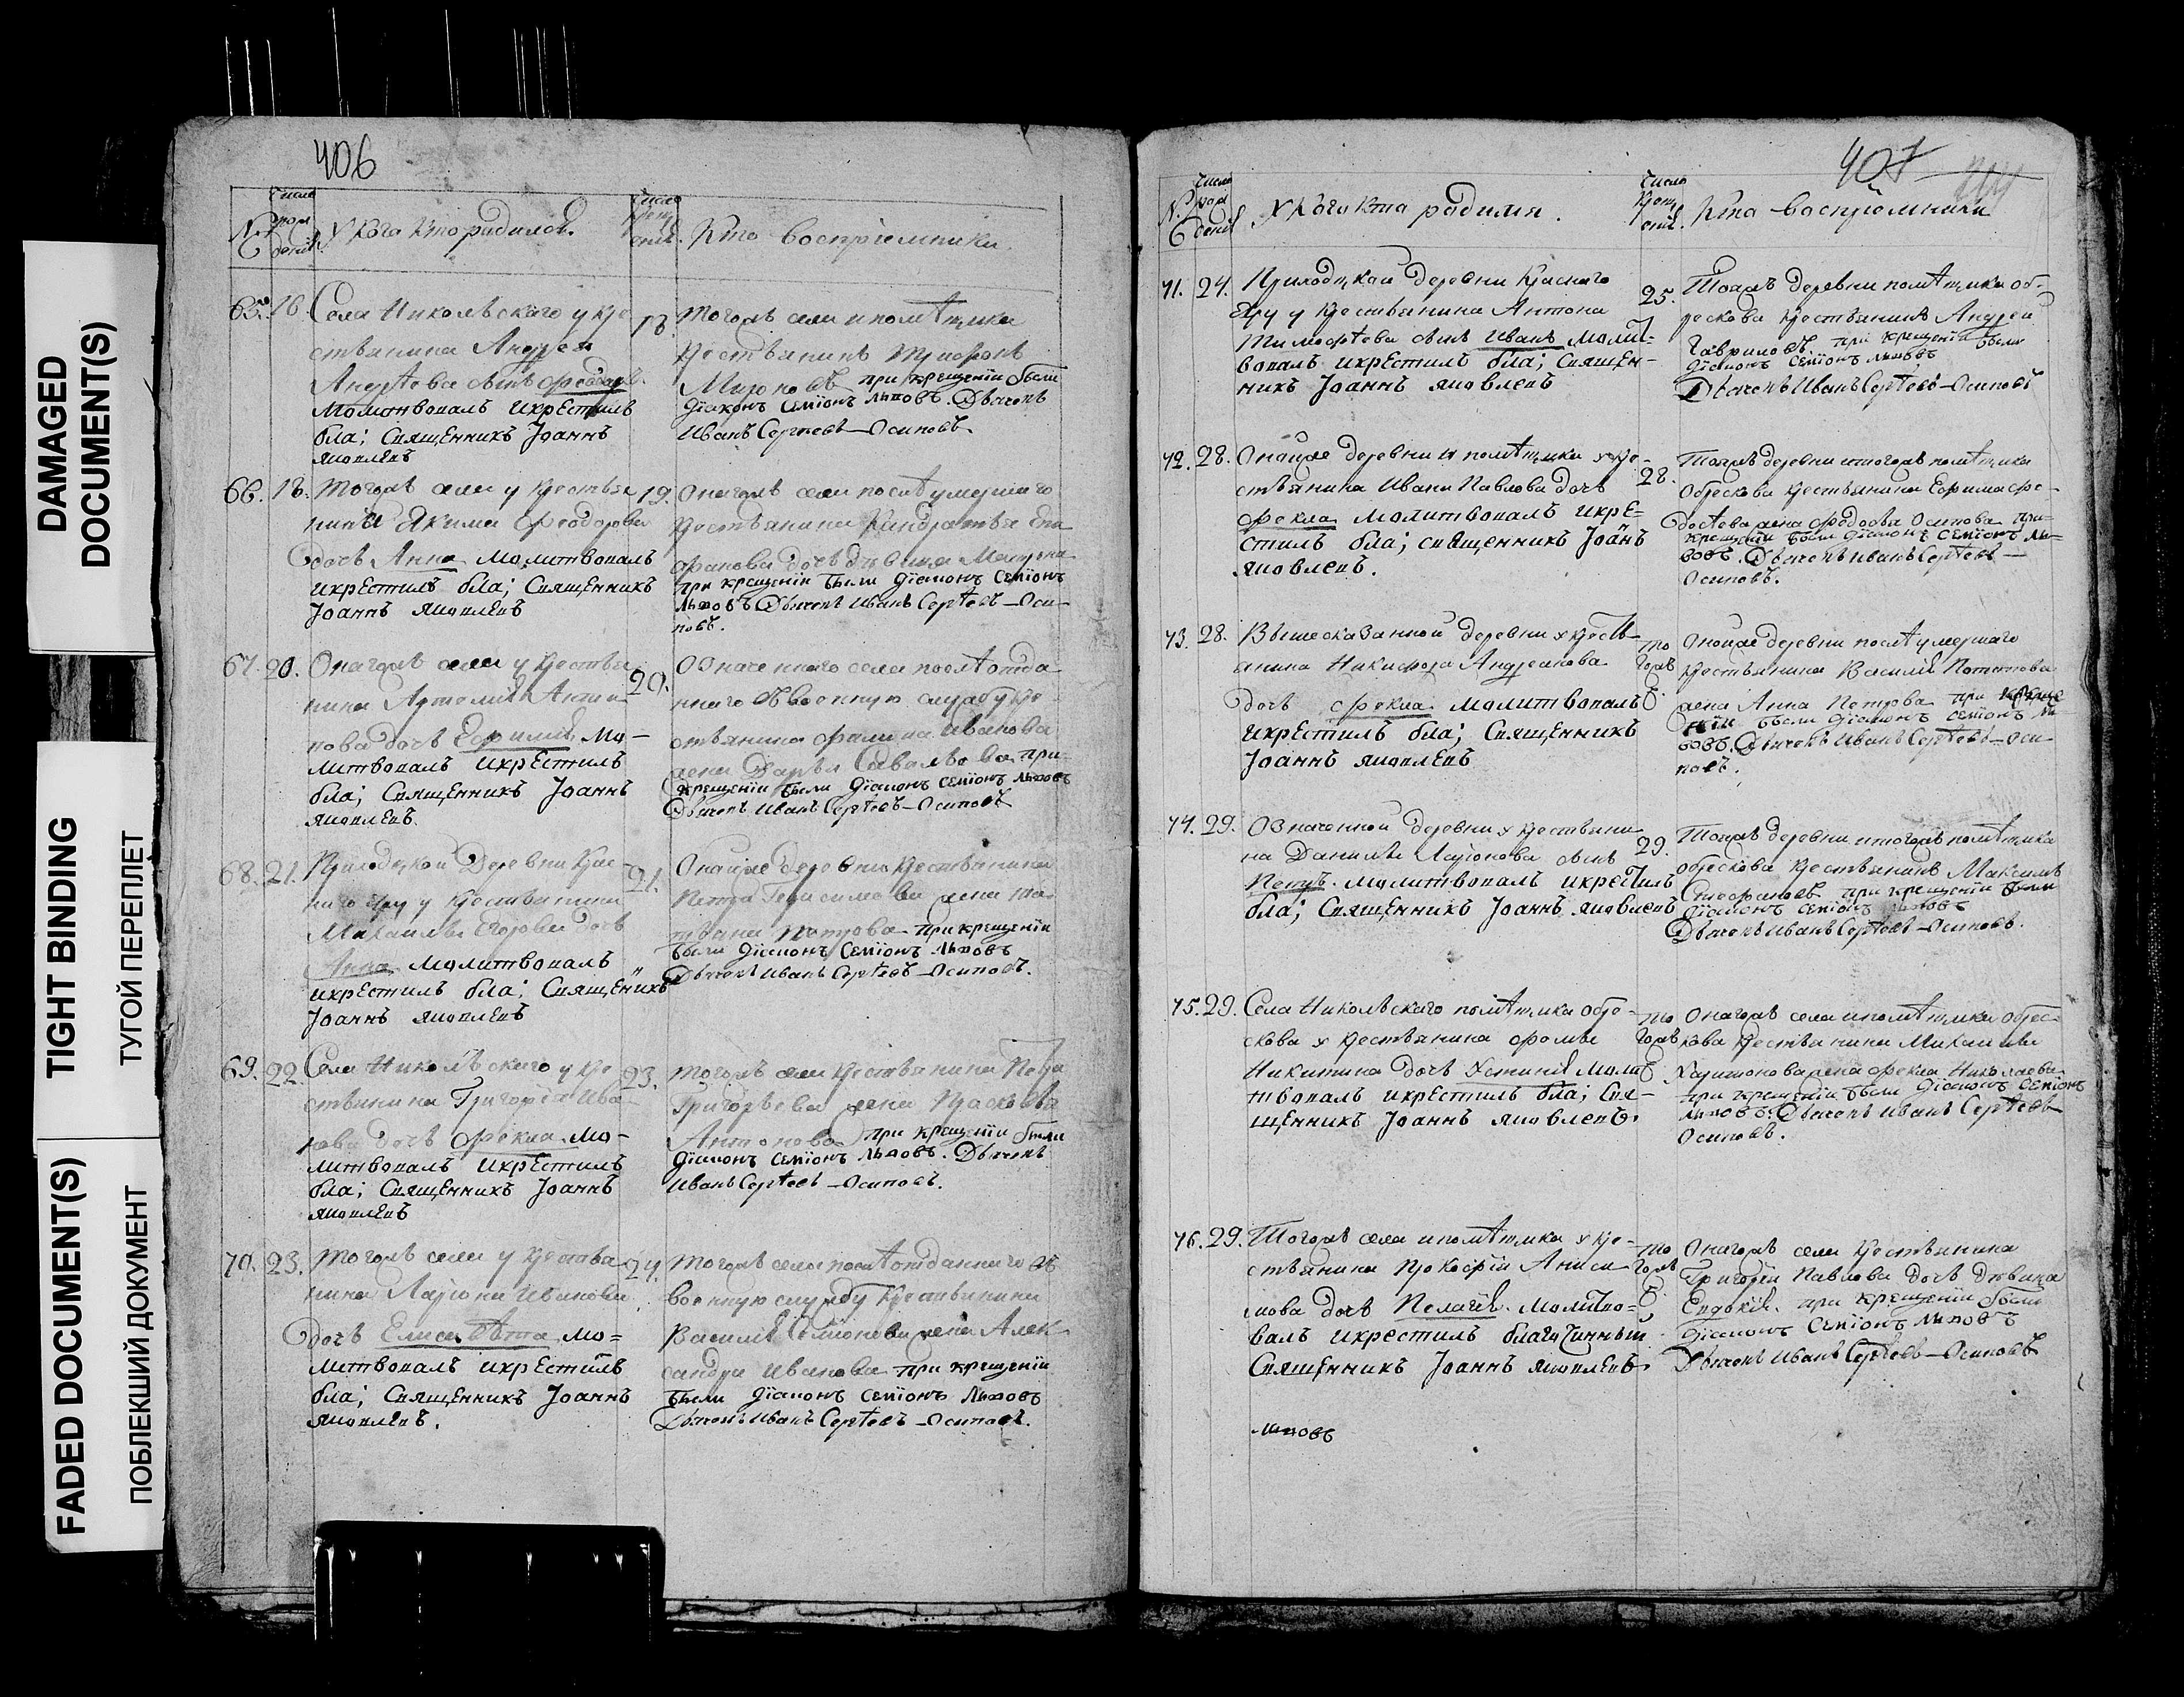 DAMAGED
DOCUMENT(S)
TIGHT BINDING
ТУГОЙ ПЕРЕПЛЕТ
FADED DOCUMENT(S)
ПОБЛЕКШИЙ ДОКУМЕНТ
406
№
число рождения
У кого кто родился.
число крещения
Кто восприемники.
65. 16. Села Никольского у кре
стьянина Андрея
Андрѣева сынъ Феодоръ
молитвовалъ и крестилъ
бла; Священникъ Іоаннъ
Яковлевъ
18. Тогожъ села и помѣщика
крестьянинъ Трифонъ
Мироновъ при крещеніи были
Діаконъ Семіонъ Львовъ. Дьячекъ
Иванъ Сергѣевъ Осиповъ
66. 18. Тогожъ села у крестья
нина Якима Феодорова
дочь Анна молитвовалъ
и крестилъ бла; Священникъ
Іоаннъ Яковлевъ
19. Оногожъ села послѣ умершаго
крестьянина Кандратья Епи
фанова дочь дѣвица Матрена
при крещеніи были Діаконъ Семіонъ
Львовъ Дьячекъ Иванъ Сергѣевъ Оси-
повъ.
67. 20. Оногожъ села у крестья
нина Артемія Анти
пова дочь Евфимія мо-
литвовалъ и крестилъ
бла; Священникъ Іоаннъ
Яковлевъ.
20. Означеннаго села послѣ отда
ннаго въ военную службу кре
стьянина Филипа Иванова
жена Дарья Савельева при
крещеніи были Діаконъ Семіонъ Львовъ
Дьячекъ Иванъ Сергѣевъ Осиповъ
68. 21. Приходской деревни Крас-
наго Яру у крестьянина
Михаилы Егорова дочь
Анна молитвовалъ
и крестилъ бла; Священникъ
Іоаннъ Яковлевъ
21. Оной же деревни крестьянина
Петра Герасимова жена Та
тьяна Петрова при крещеніи
были Діаконъ Семіонъ Львовъ
Дьячекъ Иванъ Сергѣевъ Осиповъ.
69. 22. Села Никольскаго у кре
стьянина Григорья Ива-
нова дочь Фекла мо-
литвовалъ и крестилъ
бла; Священникъ Іоаннъ
Яковлевъ
23. Тогожъ села крестьянина Петра
Григорьева жена Прасковья
Антонова при крещеніи были
Діаконъ Семіонъ Львовъ. Дьячекъ
Иванъ Сергѣевъ Осиповъ.
70. 23. Тогожъ села у крестья
нина Ларіона Иванова
дочь Елисавѣта мо=
литвовалъ и крестилъ
бла; Священникъ Іоаннъ
Яковлевъ.
24. Тогожъ села послѣ отданнаго въ
военную службу крестьянина
Василія Семіонова жена Алек
сандра Иванова при крещеніи
были Діаконъ Семіонъ Львовъ
Дьячекъ Иванъ Сергѣевъ Осиповъ.
407
№
число рожденія
У кого кто родился.
число крещенія
Кто воспріемники
71. 24. Приходской деревни Краснаго
Яру у крестьянина Антона
Тимофѣева сынъ Иванъ молит-
вовалъ и крестилъ бла; Священ-
никъ Іоаннъ Яковлевъ
25. Тояжъ деревни помѣщика об-
рескова крестьянинъ Андрей
Гавриловъ при крещеніи были
Діаконъ Семіонъ Львовъ
Дьячекъ Иванъ Сергѣевъ Осиповъ
72. 28. Оной же деревни и помѣщика у кре-
стьянина Ивана Павлова дочь
Фекла молитвовалъ и кре-
стилъ бла; священникъ Іоанъ
Яковлевъ.
28. Тояжъ деревни и тогожъ помѣщика
Обрескова крестьянина Ефима Фе-
дотова жена Федосья Осипова при-
крещеніи были Діаконъ Семіонъ Ль-
вовъ. Дьячекъ Иванъ Сергѣевъ
Осиповъ.
73. 28. Вышесказанной деревни у кресть-
янина Никифора Андреянова
дочь Фекла молитвовалъ
и крестилъ бла; Священникъ
Іоаннъ Яковлевъ
то
гожъ
Оной же деревни послѣ умершаго
крестьянина Василія Потапова
жена Анна Петрова при креще
ніи были Діаконъ Семіонъ Ль-
вовъ. Дьячекъ Иванъ Сергѣевъ Оси-
повъ.
74. 29. Означенной деревни у крестьяни
на Данилы Ларіонова сынъ
Петръ. молитвовалъ и крестилъ
бла; Священникъ Іоаннъ Яковлевъ
29. Тояжъ деревни и тогожъ помѣщика
обрескова крестьянинъ Максимъ
Стефановъ при крещеніи были
Діаконъ Семіонъ Львовъ
Дьячекъ Иванъ Сергѣевъ Осиповъ.
75. 29. Села Никольскаго помѣщика обре-
скова у крестьянина Фомы
Никитина дочь Устинія моли
твовалъ и крестилъ бла; Свя-
щенникъ Іоаннъ Яковлевъ.
то
гожъ
Оногожъ села и помѣщика обрес-
кова крестьянина Михаилы
Харитонова жена Фекла Николаева
при крещеніи были Діаконъ Семіонъ
Львовъ. Дьячекъ Иванъ Сергѣевъ
Осиповъ.
76. 29. Тогожъ села и помѣщика у кре-
стьянина Прокофія Аниси
мова дочь Пелагія. молитво=
валъ и крестилъ благочинный
Священникъ Іоаннъ Яковлевъ
то
гожъ
Оногожъ села крестьянина
Григорія Павлова дочь дѣвица
Евдокія. при крещеніи были
Діаконъ Семіонъ Львовъ
Дьячекъ Иванъ Сергѣевъ Осиповъ
Львовъ